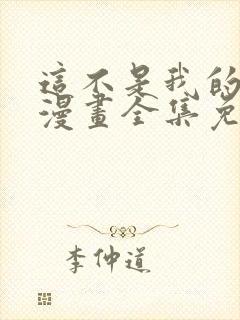 這不是我的
漫畫全集免
李仲道